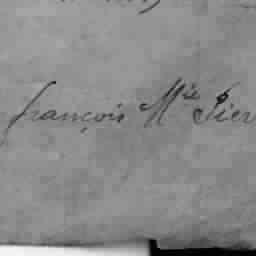 françois Mie Pier